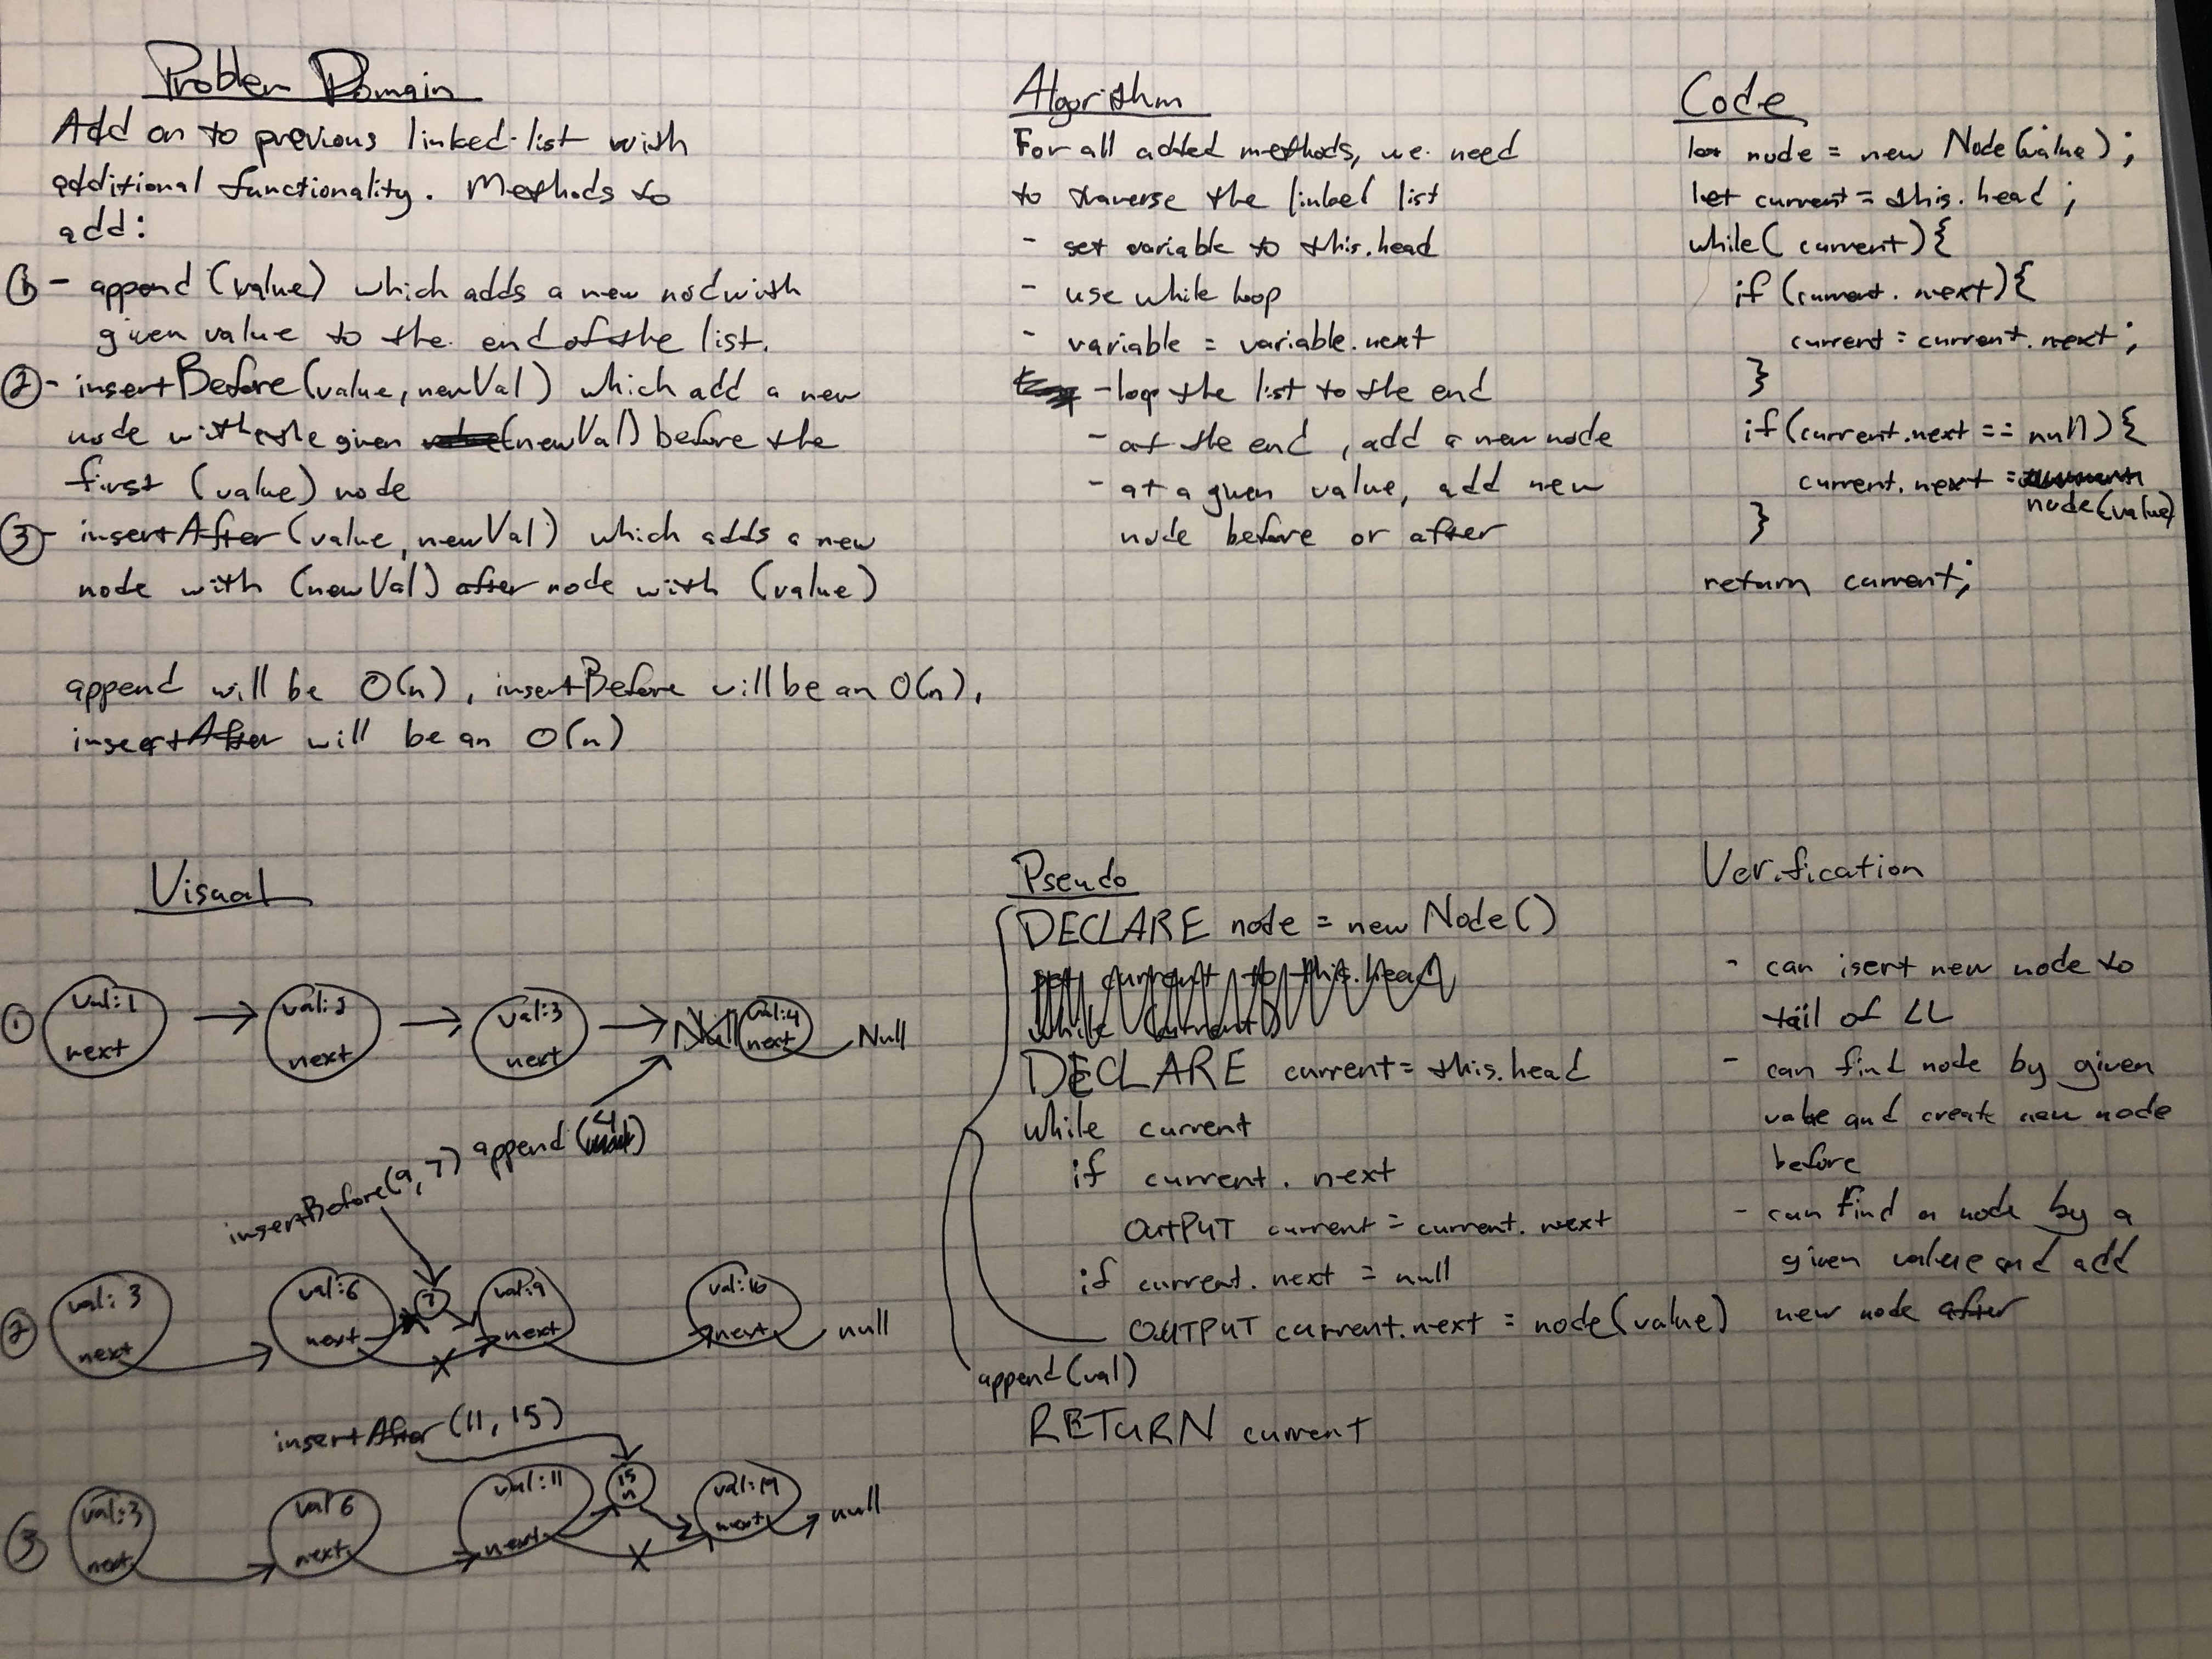 Problem Domain
Add on to previous linked-list with
additional functionality. Methods to
add:
① - append (value) which adds a new nod with
given value to the end of the list.
② - insertBefore (value, newVal) which add a new
node with the given (newVal) before the
first (value) node
③ - insertAfter (value, newVal) which adds a new
node with (newVal) after node with (value)
append will be O(n), insertBefore will be an O(n),
insertAfter will be an O(n)
Algorithm
For all added methods, we need
to traverse the linked list
- set variable to this.head
- use while loop
- variable = variable.next
- loop the list to the end
- at the end, add a new node
- at a given value, add new
node before or after
Code
let node = new Node(value);
let current = this.head;
while( current){
if (current.next){
current = current.next;
}
if(current.next == null){
current.next =
node(value)
}
return current;
Visual
①
val:1
next
val:2
next
val:3
next
Null
val:4
next
Null
append (4)
insertBefore(9, 7)
②
val: 3
next
val:6
next
7
val:9
next
val:10
next
null
insertAfter (11, 15)
③
val:3
next
val 6
next
val:11
next
15
n
val:19
next
null
Pseudo
DECLARE node = new Node()
set current to this.head
while current
DECLARE current = this.head
while current
if current.next
OUTPUT current = current.next
if current.next = null
OUTPUT current.next = node(value)
append(val)
RETURN current
Verification
- can isert new node to
tail of LL
- can find node by given
value and create new node
before
- can find a node by a
given value and add
new node after